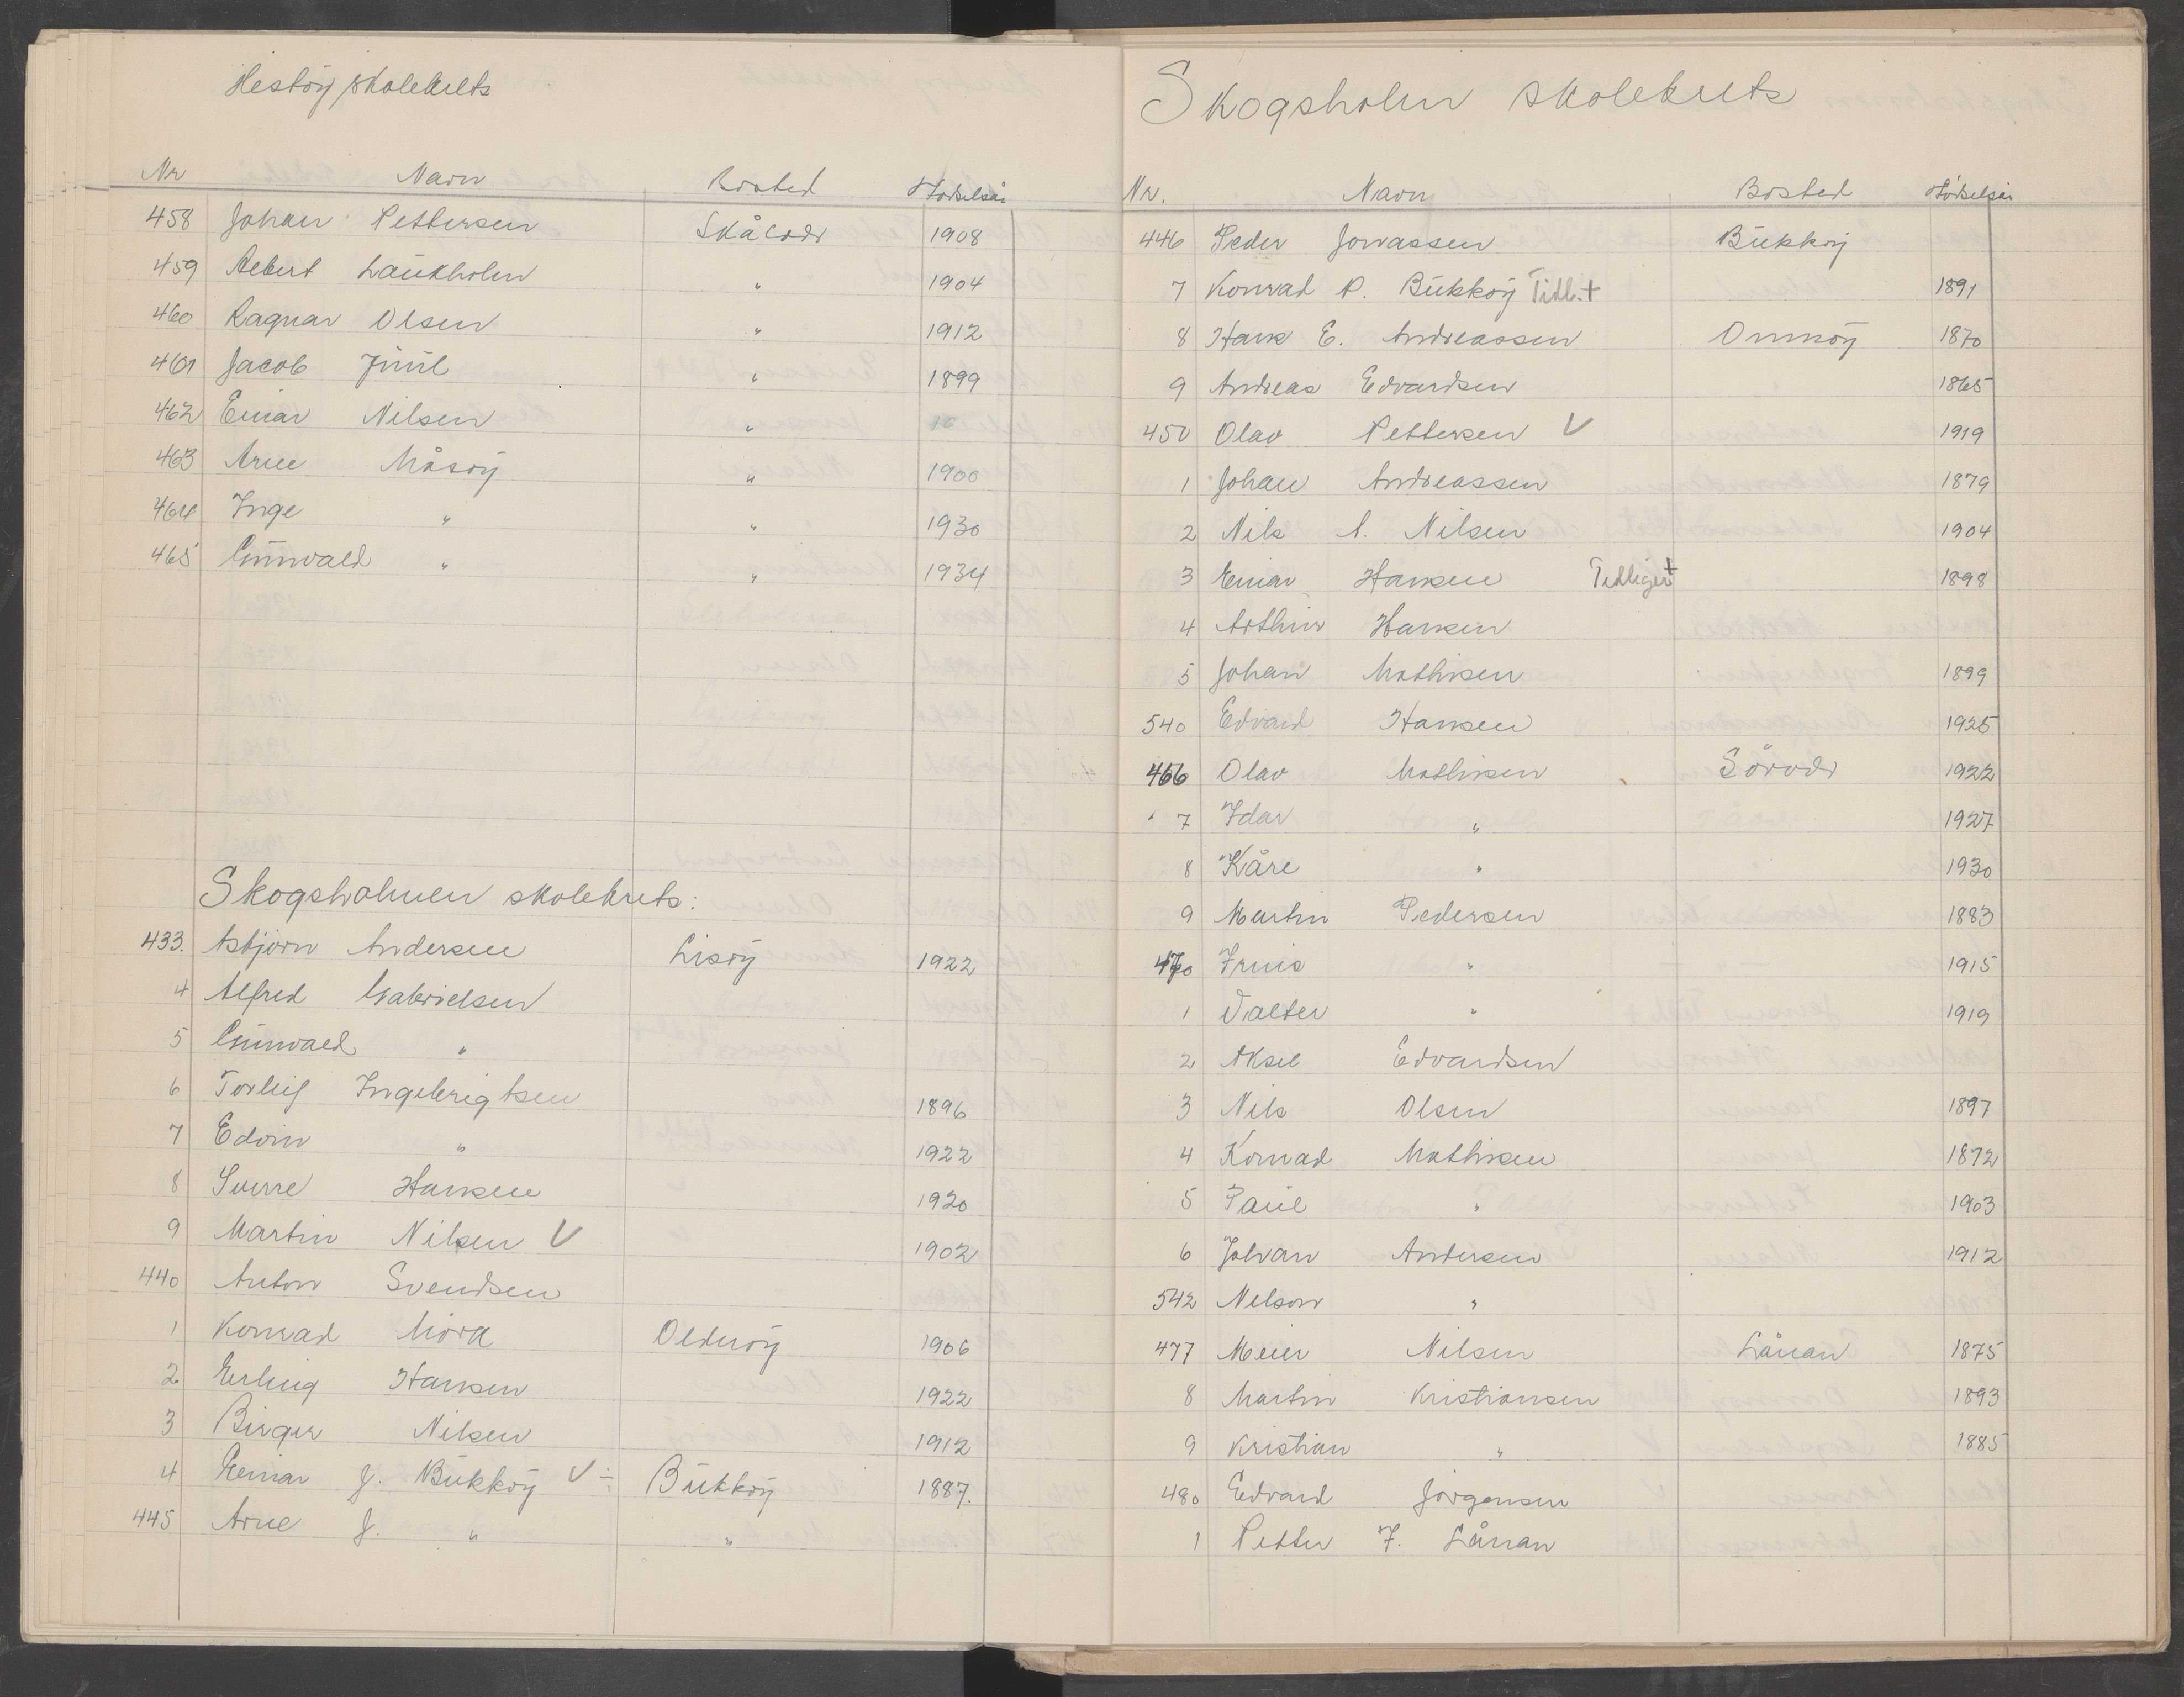 Hestöy skolekrets
Nr Navn Bosted Födselsår
458 Johan Pettersen Skålvær 1908
459 Albert Laukholm " 1904
460 Ragnar Olsen " 1912
461 Jacob Juul " 1899
462 Einar Nilsen "
463 Arne Måsöy " 1900
464 Inge " " 1930
465 Gunvald " " 1934
Skogsholmen skolekrets:
433. Asbjørn Andersen Lisöy 1922
4 Alfred Gabrielsen
5 Gunvald "
6 Torleif Ingebrigtsen 1896
7 Edvin " 1922
8 Sverre Hansen 1920
9 Martin Nilsen V 1902
440 Anton Svendsen
1 Konrad Mörk Olderöy 1906
2 Erling Hansen 1922
3 Birger Nilsen 1912
4 Einar J. Bukköy V ÷ Bukköy 1887.
445 Arne J. " "
Skogsholm skolekrets
Nr. Navn Bosted Födselsår
446 Peder Jonassen Bukköy
7 Konrad P. Bukköy Tidl. + 1891
8 Hans E. Andreassen Omnöy 1870
9 Andreas Edvardsen 1865
450 Olav Pettersen V 1919
1 Johan Andreassen 1879
2 Nils A. Nilsen 1904
3 Einar Hansen Tidligere + 1898
4 Arthur Hansen
5 Johan Mathisen 1899
540 Edvard Hansen 1925
466 Olav Mathisen Sörvær 1922
7 Idar " 1927
8 Kåre " 1930
9 Martin Pedersen 1883
470 Irnis " 1915
1 Valter " 1919
2 Aksel Edvardsen
3 Nils Olsen 1897
4 Konrad Mathisen 1872
5 Paul " 1903
6 Johan Andersen 1912
542 Nelson "
477 Meier Nilsen Lånan 1875
8 Martin Kristiansen 1893
9 Kristian " 1885
480 Edvard Jörgensen
1 Petter J. Lånan